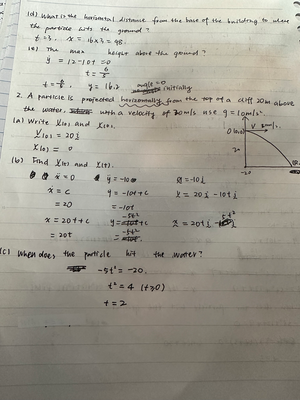 (d) What is the horizontal distance from the base of the building to where
the particle hits the ground?
t = 3. x = 16 x 3 = 48.
(e) The max height above the ground?
y = 12 - 10t = 0
t = 6/5
t = 6/5 y = 16.2 initially
2. A particle is projected horizontally from the top of a cliff 20m above
the water, with a velocity of 20m/s use g = 10ms⁻².
(a) Write V(0) and X(0).
V(0) = 20i
X(0) = 0
(b) Find V(t) and X(t).
ẍ = 0 ÿ = -10 = -10j
ẋ = c ẏ = -10t + c V = 20i - 10tj
= 20 = -10t
x = 20t + c y = -5t²
= 20t = -5t²
(c) When does the particle hit the water?
-5t² = -20.
t² = 4 (t≥0)
t = 2